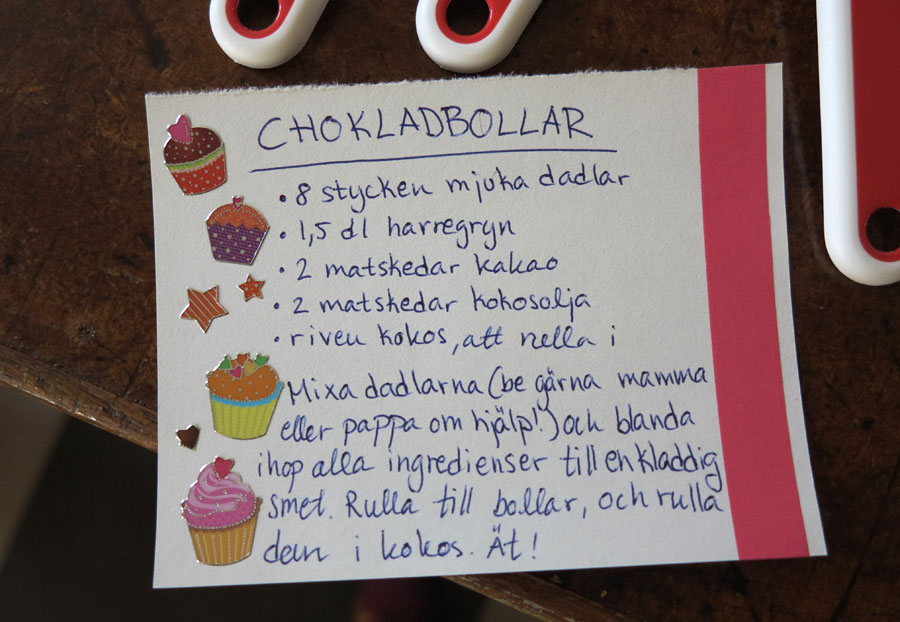 CHOKLADBOLLAR
• 8 stycken mjuka dadlar
• 1,5 dl harregryn
• 2 matskedar kakao
• 2 matskedar kokosolja
• riven kokos, att rulla i
Mixa dadlarna (be gärna mamma
eller pappa om hjälp!) och blanda
ihop alla ingredienser till en kladdig
smet. Rulla till bollar, och rulla
dem i kokos. Ät!